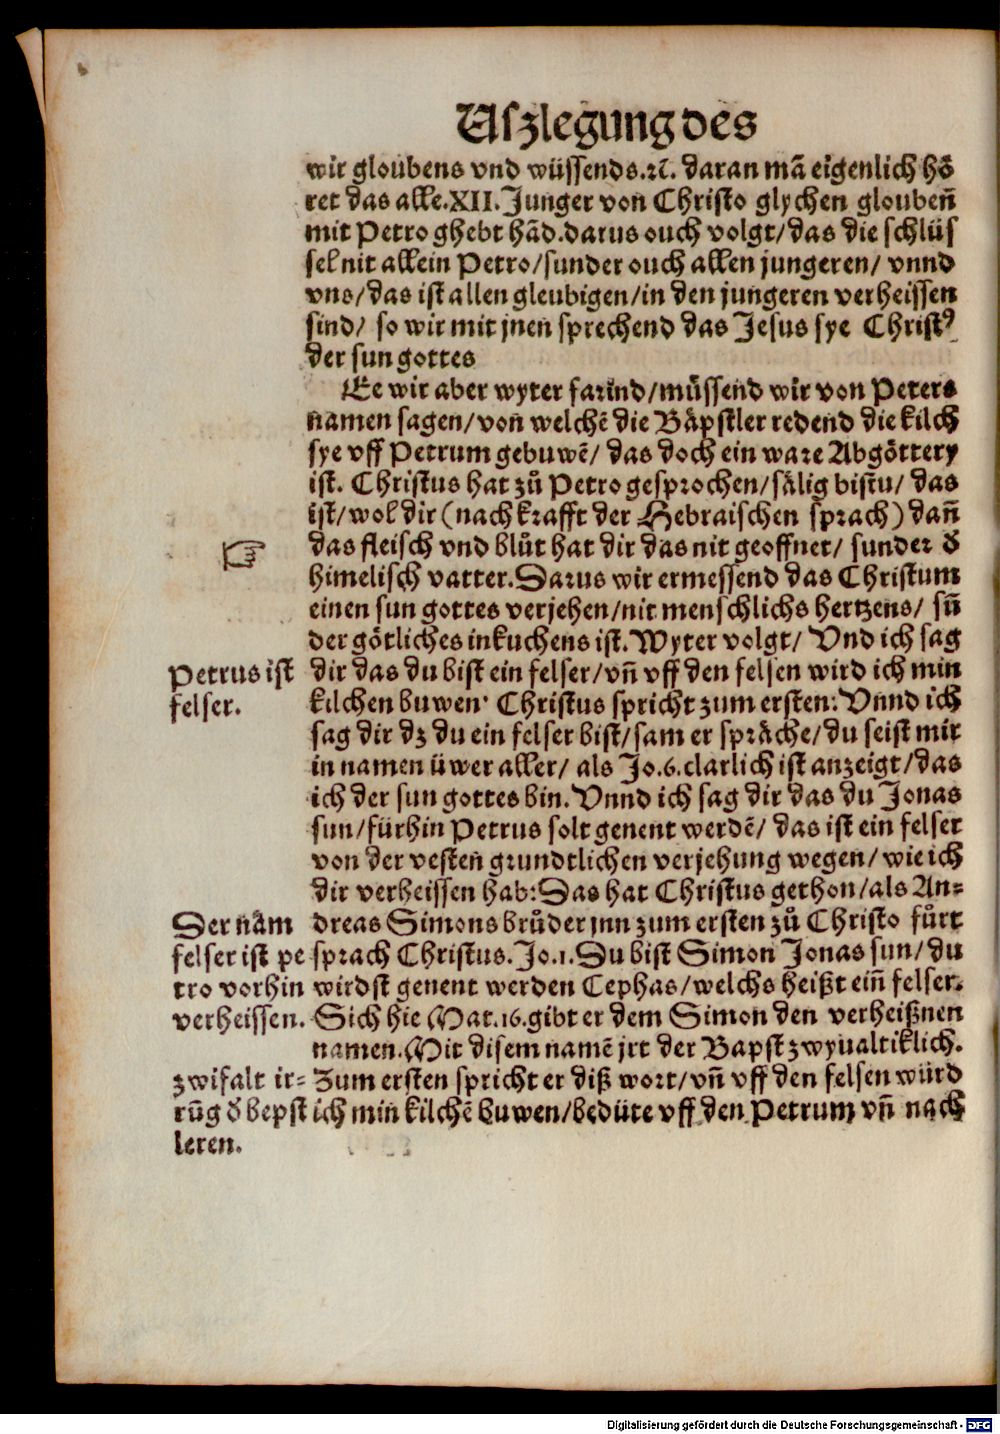 Uſzlegung des
wir gloubens vnd wüſſends.ꝛc̄. daran mā eigenlich hö
ret das alle.XII.Junger von Chriſto glychen glouben̄
mit Petro ghebt hād.darus ouch volgt/das die ſchlüſ
ſel nit allein Petro/ſunder ouch allen jungeren/ vnnd
vns/das iſt allen gleubigen/in den jungeren verheiſſen
ſind/ ſo wir mit jnen ſprechend das Jeſus ſye Chriſtꝰ
der ſun gottes
Ee wir aber wyter farind/müſſend wir von Peters
namen ſagen/von welchē die Bäpſtler redend die kilch
ſye vff Petrum gebuwē/ das doch ein ware Abgöttery
iſt. Chriſtus hat zů Petro geſprochen/ſälig biſtu/ das
iſt/wol dir (nach krafft der Hebraiſchen ſprach) dan̄
☞ das fleiſch vnd blůt hat dir das nit geoffnet/ ſunder d̕
himeliſch vatter.Darus wir ermeſſend das Chriſtum
einen ſun gottes verjehen/nit menſchlichs hertzens/ ſun̄
der götliches inkuchens iſt.Wyter volgt/ Vnd ich ſag
Petrus iſt
felſer.
dir das du biſt ein felſer/vn̄ vff den felſen wird ich min
kilchen buwen· Chriſtus ſpricht zum erſten:Vnnd ich
ſag dir dz du ein felſer biſt/ſam er ſpräche/du ſeiſt mir
in namen üwer aller/ als Jo.6.clarlich iſt anzeigt/das
ich der ſun gottes bin.Vnnd ich ſag dir das du Jonas
ſun/fürhin Petrus ſolt genent werdē/ das iſt ein felſer
von der veſten grundtlichen verjehung wegen/ wie ich
dir verheiſſen hab:Das hat Chriſtus gethon/als An-
Der näm
felſer iſt pe
tro vorhin
verheiſſen.
dreas Simons brůder jnn zum erſten zů Chriſto fůrt
ſprach Chriſtus.Jo.1.Du biſt Simon Jonas ſun/du
wirdſt genent werden Cephas/welchs heißt ein̄ felſer.
Sich hie Mat.16.gibt er dem Simon den verheißnen
namen.Mit diſem namē jrt der Bapſt zwyualtiklich.
zwifalt ir-
rūg d̕ bepſt
leren.
Zum erſten ſpricht er diß wort/vn̄ vff den felſen würd
ich min kilchē buwen/bedüte vff den Petrum vn̄ nach
Digitalisierung gefördert durch die Deutsche Forschungsgemeinschaft - DFG